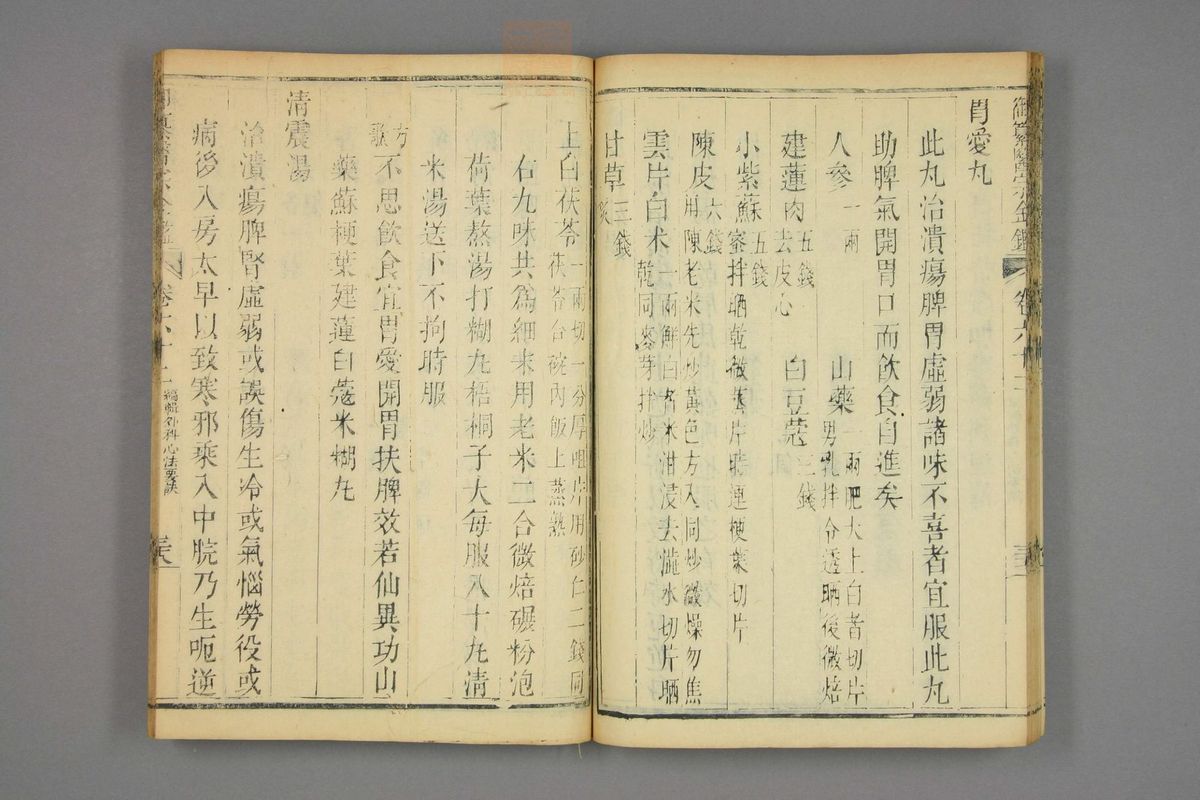 御纂醫宗金鑑
卷六十二
胃愛丸
此丸治潰瘍脾胃虛弱諸味不喜者宜服此丸
助脾氣開胃口而飲食自進矣
人參一兩
山藥一兩肥大上白者切片
男乳拌令透晒後微焙
建蓮肉五錢
去皮心
白豆蔻三錢
小紫蘇五錢
蜜拌晒乾微蒸片時連梗葉切片
陳皮六錢
用陳老米先炒黃色方入同炒微燥勿焦
雲片白术一兩鮮白者米泔浸去澁水切片晒
乾同麥芽拌炒
甘草三錢
炙
上白茯苓一兩切一分厚咀片用砂仁二錢同
茯苓合碗內飯上蒸熟
右九味共為細末用老米二合微焙碾粉泡
荷葉熬湯打糊丸梧桐子大每服八十丸清
米湯送下不拘時服
方歌
不思飲食宜胃愛開胃扶脾效若仙異功山
藥蘇梗葉建蓮白蔻米糊丸
清震湯
治潰瘍脾腎虛弱或誤傷生冷或氣惱勞役或
病後入房太早以致寒邪乘入中脘乃生呃逆
卷六十二
編輯外科心法要訣